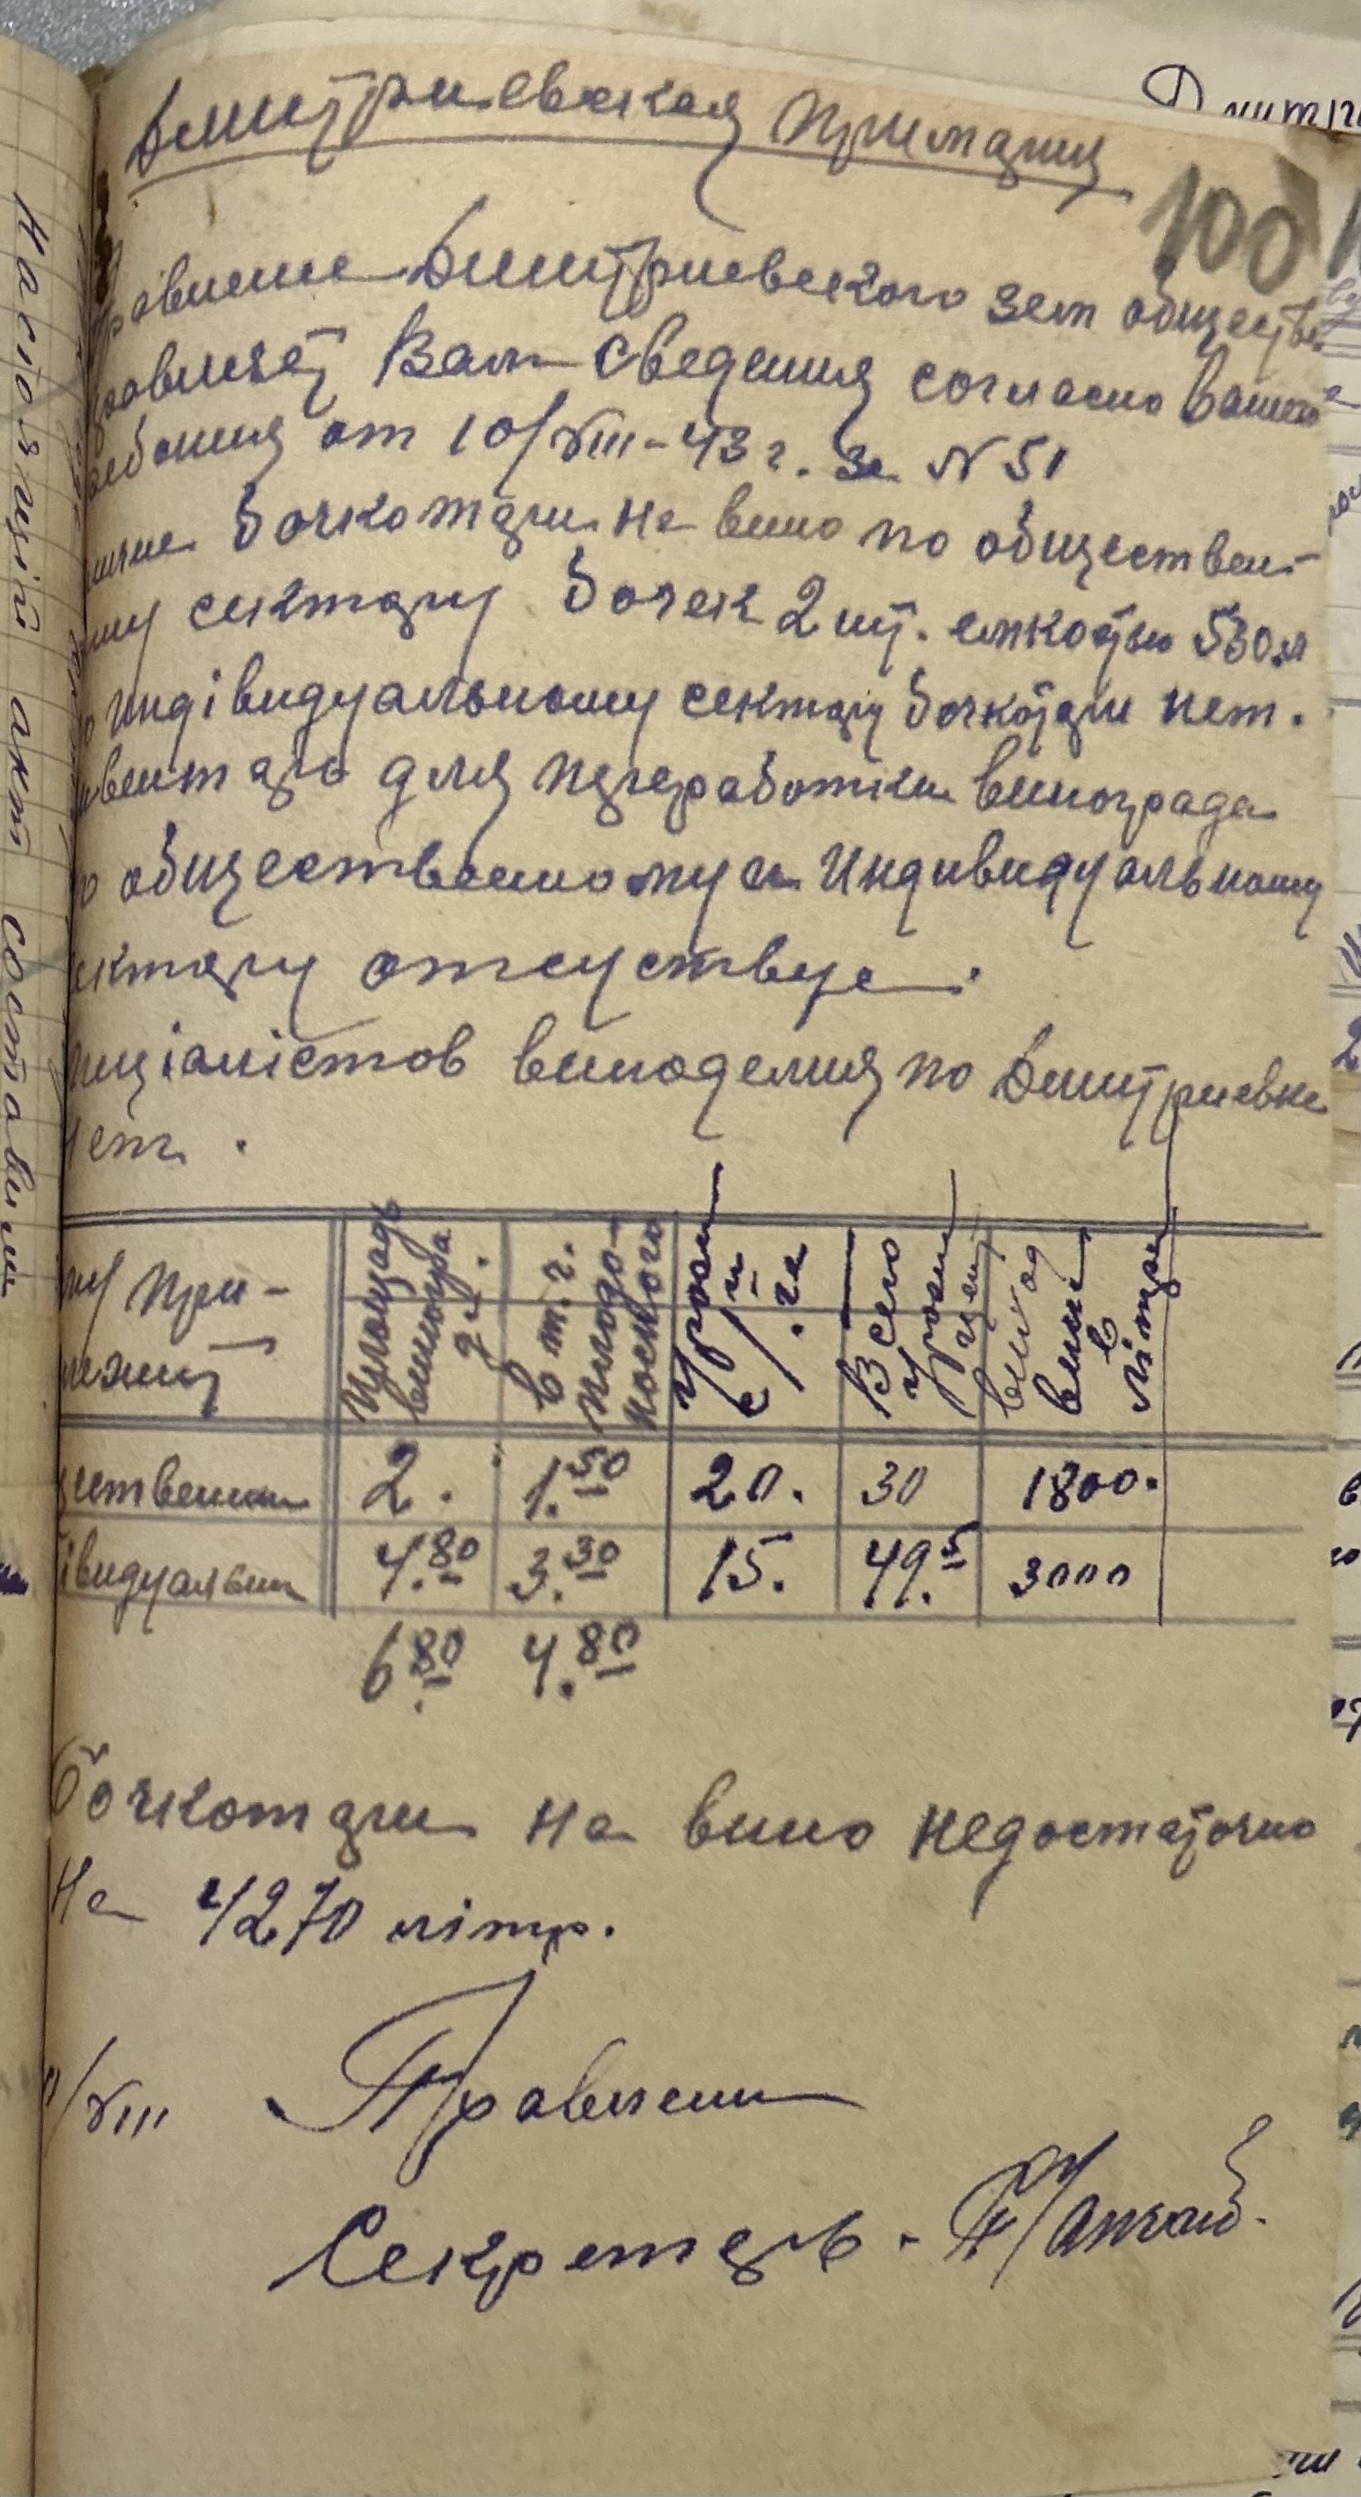 Дмитриевская Примария
100
Дмитриевского зем обществ
Вам сведения согласно вашего
от 10/VIII-43 г. за N 51
бочкотари на вино по обществен-
сектару бочек 2 шт. емкостью 530 л
индівидуальному сектару бочкотари нет.
для переработки винограда
общественному и Индивидуальному
ектару отсуствуе.
ціалістов виноделия по Дмитриевке
нет.
При-
лежит
Площадь виногра да.
в т.ч. плодо- носного
Урож с/га
Всего урож
виход вина в літрах
ественн 2. 1.50 20. 30 1800.
івидуальн 4.80 3.30 15. 49.5 3000
6.80 4.80
Бочкотари на вино недостаточно
на 4270 літр.
/VIII Правлени
Секретарь -
Настоящий акт составили